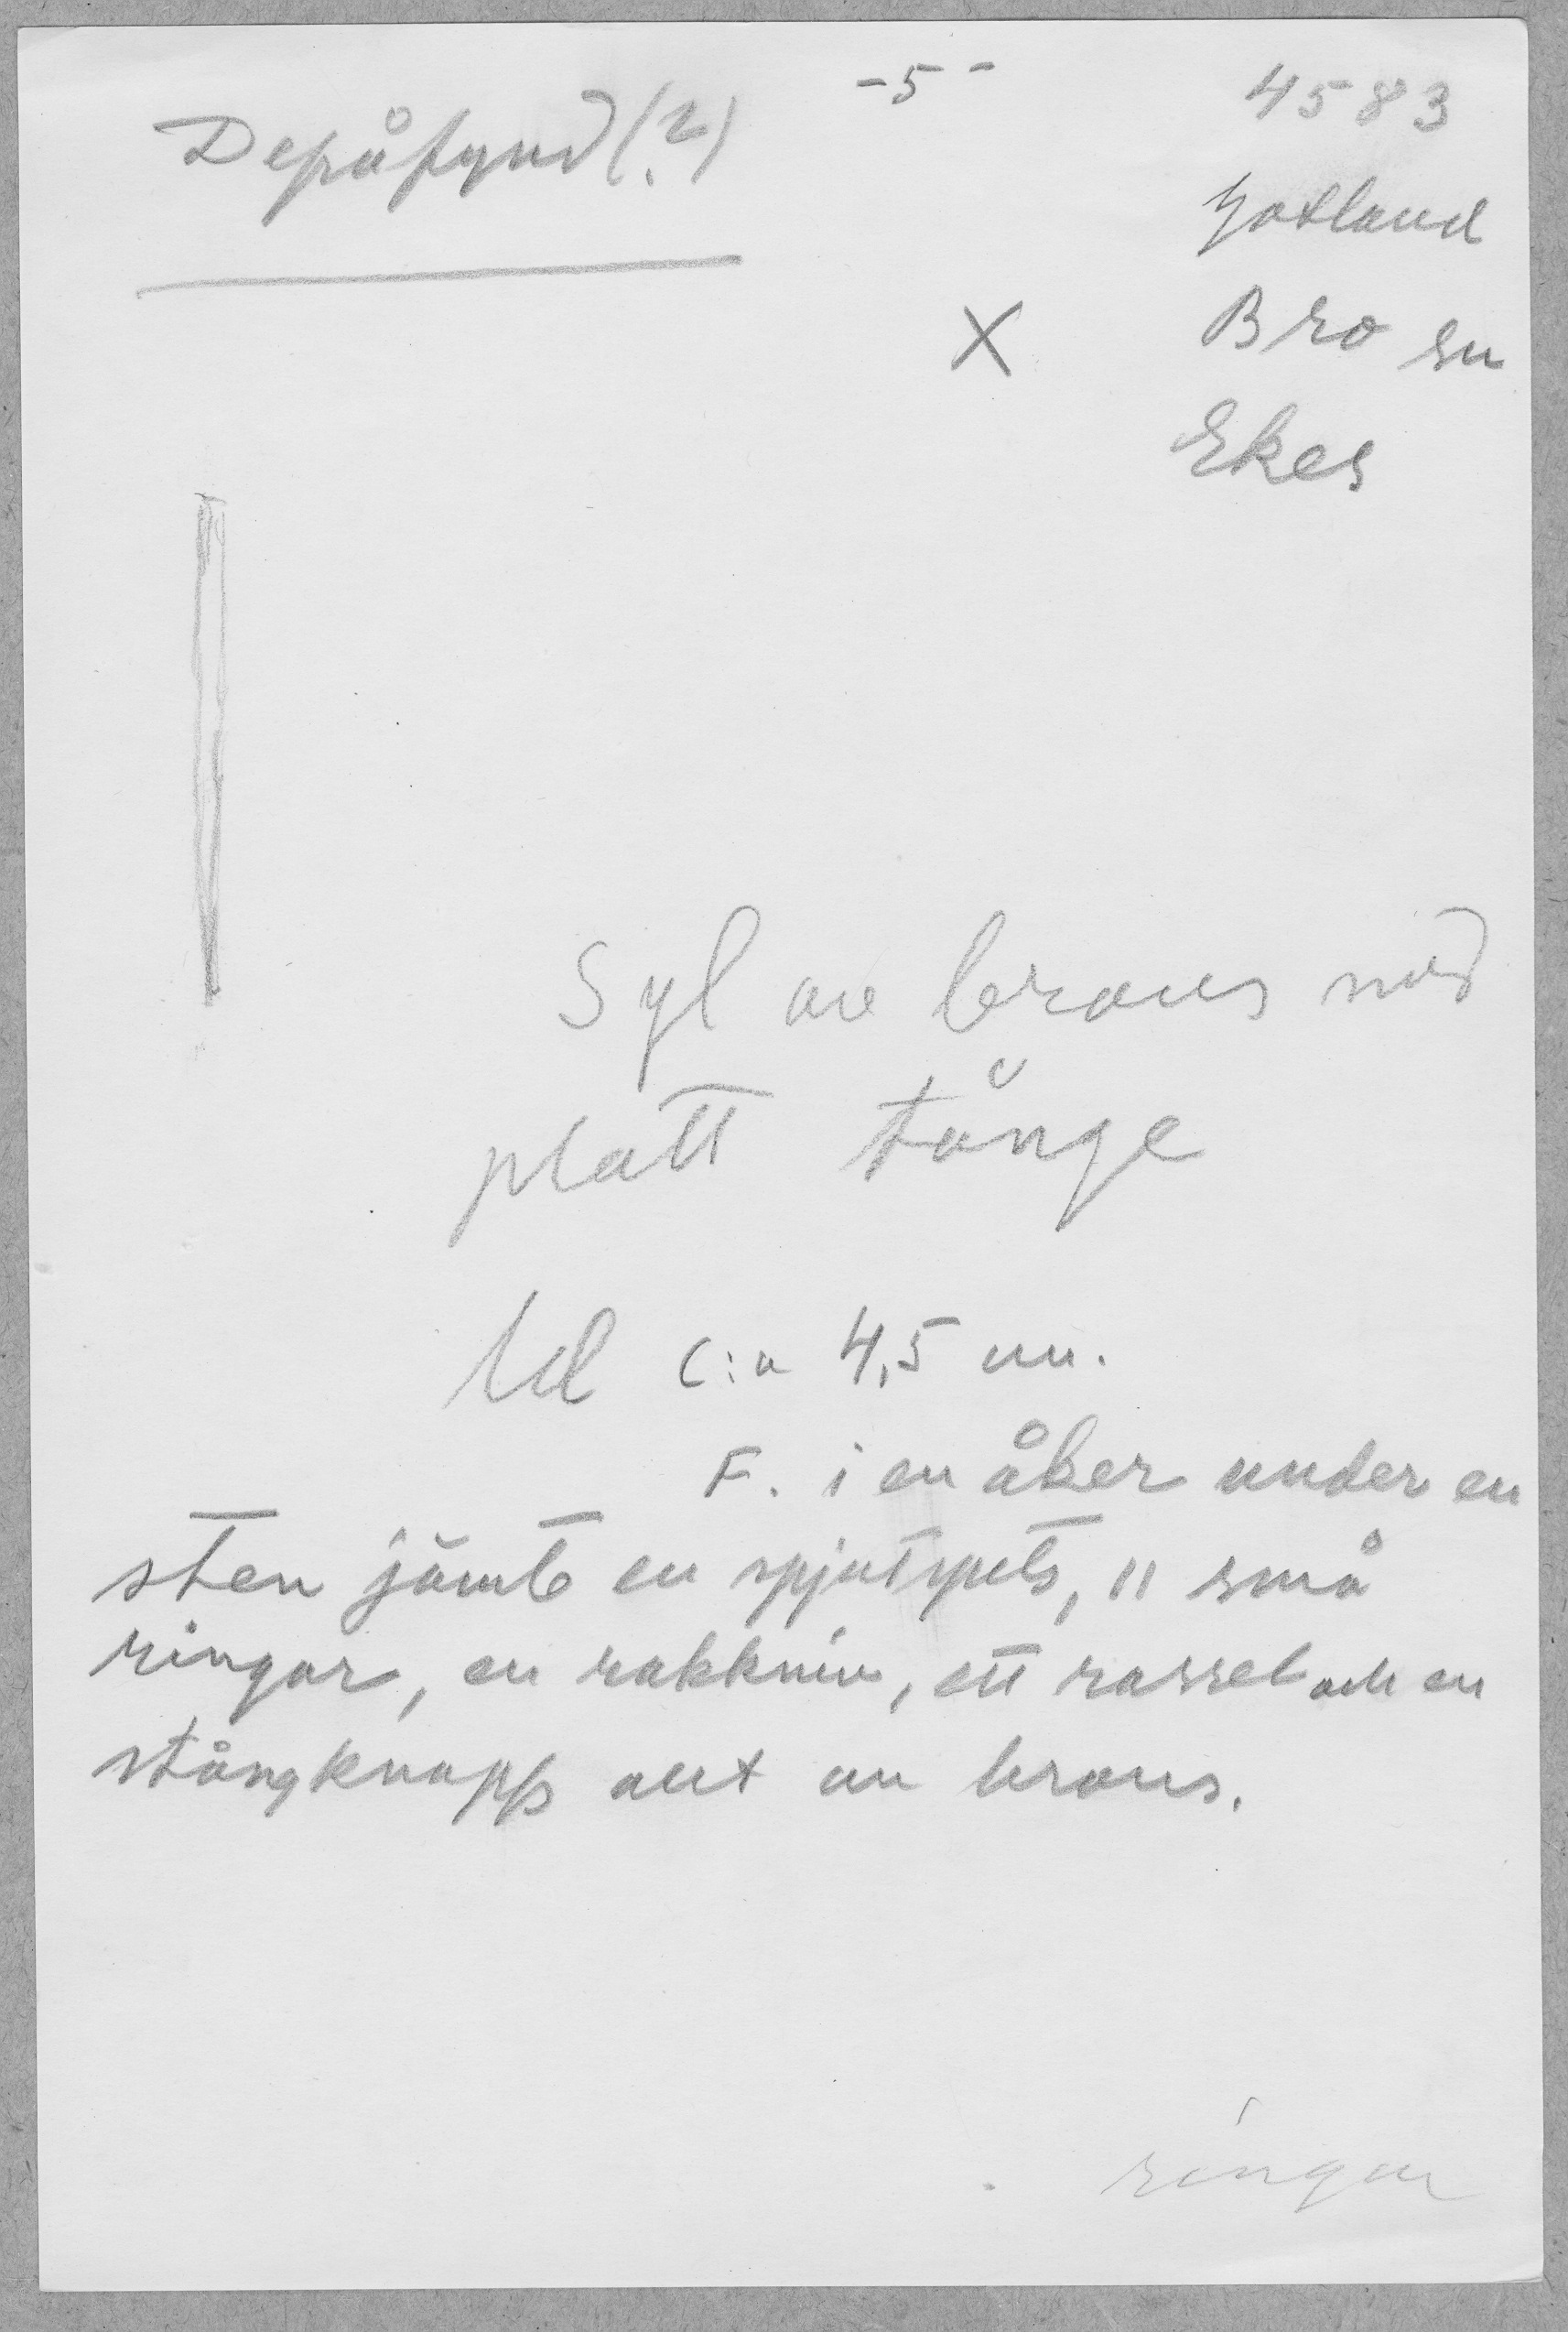 -5-
4583
Depåfynd (?)
Gotland
X Bro sn
Ekes
Syl av brons med
platt tånge
Ld c:a 4,5 cm.
F. i en åker under en
sten jämte en spjutspets, 11 små
ringar, en rakkniv, ett rassel och en
stångknapp allt av brons.
ringar